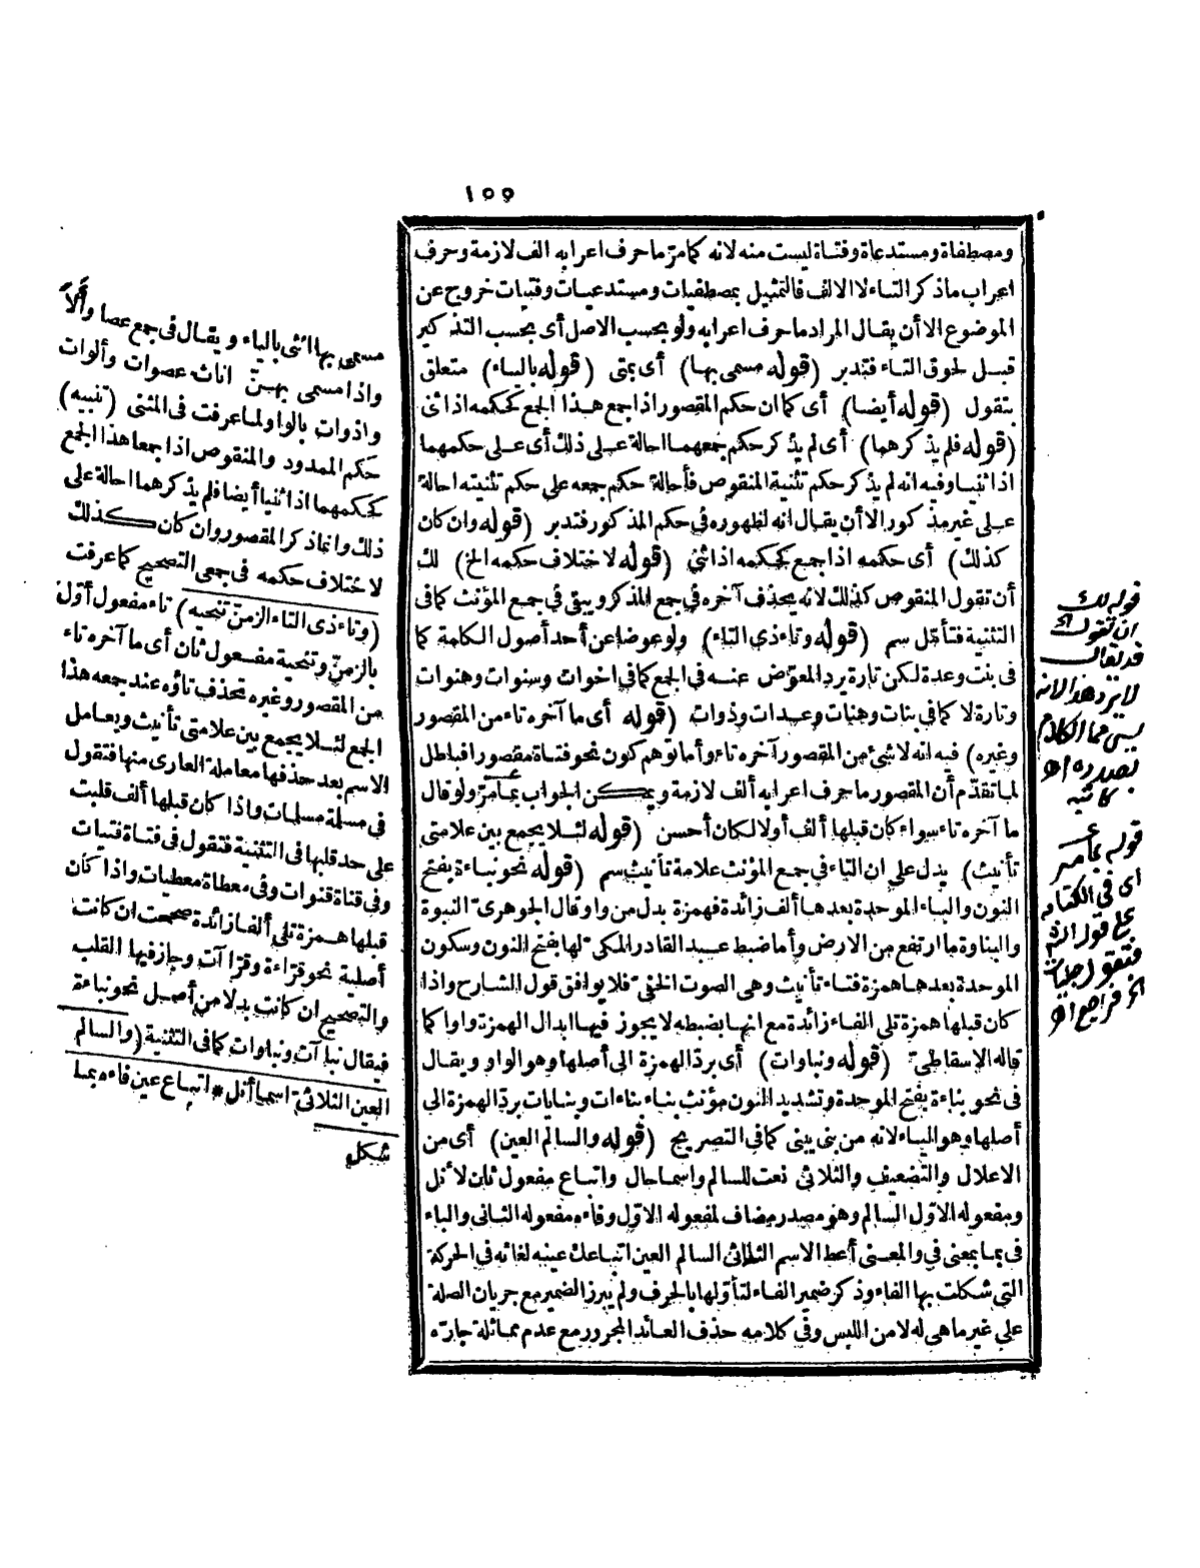 ١٥٥
ومصطفاة ومستدعاة وفتاة ليست منه لانه كما مرّ ما حرف اعرابه الف لازمة وحرف
اعراب ما ذكر التاء لا الالف فالتمثيل بمصطفيات ومستدعيات وفتيات خروج عن
الموضوع الا أن يقال المراد ما حرف اعرابه ولو بحسب الاصل أى بحسب التذكير
قبل لحوق التاء فتدبر (قوله مسمى بها) أى بمتى (قوله بالياء) متعلق
بتقول (قوله أيضا) أى كما ان حكم المقصور اذا جمع هذا الجمع كحكمه اذا ثنى
(قوله فلم يذكرهما) أى لم يذكر حكم جمعهما احالة على ذلك أى على حكمهما
اذا ثنيا وفيه انه لم يذكر حكم تثنية المنقوص فأحالة حكم جمعه على حكم تثنيته احالة
على غير مذكور الا أن يقال انه لظهوره فى حكم المذكور فتدبر (قوله وان كان
كذلك) أى حكمه اذا جمع كحكمه اذا ثنى (قوله لاختلاف حكمه الخ) لك
أن تقول المنقوص كذلك لانه يحذف آخره فى جمع المذكر ويبقى فى جمع المؤنث كما فى
التثنية فتأمل سم (قوله وتاء ذى التاء) ولو عوضا عن أحد أصول الكلمة كما
فى بنت وعدة لكن تارة يرد المعوّض عنه فى الجمع كما فى اخوات وسنوات وهنوات
وتارة لا كما فى بنات وهنات وعدات وذوات (قوله أى ما آخره تاء من المقصور
وغيره) فيه انه لا شئ من المقصور آخره تاء وأما توهم كون نحو فتاة مقصورا فباطل
لما تقدّم أن المقصور ما حرف اعرابه ألف لازمة ويمكن الجواب بما مرّ ولو قال
ما آخره تاء سواء كان قبلها ألف أولا لكان أحسن (قوله لئلا يجمع بين علامتى
تأنيث) يدل على ان التاء فى جمع المؤنث علامة تأنيث سم (قوله نحو نباءة بفتح
النون والباء الموحدة بعدها ألف زائدة فهمزة بدل من واو قال الجوهرى النبوة
والنباوة ما ارتفع من الارض وأما ضبط عبد القادر المكى لها بفتح النون وسكون
الموحدة بعدها همزة فتاء تأنيث وهى الصوت الخفى فلا يوافق قول الشارح واذا
كان قبلها همزة تلى ألفا زائدة مع انها بضبطه لا يجوز فيها ابدال الهمزة واوا كما
قاله الاسقاطى (قوله ونباوات) أى برد الهمزة الى أصلها وهو الواو ويقال
فى نحو بناءة بفتح الموحدة وتشديد النون مؤنث بناء بناءات وبنايات برد الهمزة الى
أصلها وهو الياء لانه من بنى يبنى كما فى التصريح (قوله والسالم العين) أى من
الاعلال والتضعيف والثلاثى نعت للسالم واسما حال واتباع مفعول ثان لأنل
ومفعوله الاوّل السالم وهو مصدر مضاف لمفعوله الاوّل وفاءه مفعوله الثانى والباء
فى بما بمعنى فى والمعنى أعط الاسم الثلاثى السالم العين اتباعك عينه لفائه فى الحركة
التى شكلت بها الفاء وذكر ضمير الفاء لتأوّلها بالحرف ولم يبرز الضمير مع جريان الصلة
على غير ما هى له لامن اللبس وفى كلامه حذف العائد المجرور مع عدم مماثلة جارّه
مسمى بها اثنى بالياء ويقال فى جمع عصا وألا
واذا مسمى بهنّ اناث عصوات وألوات
واذوات بالواو لما عرفت فى المثنى (تنبيه)
حكم الممدود والمنقوص اذا جمعا هذا الجمع
كحكمهما اذا ثنيا أيضا فلم يذكرهما احالة على
ذلك وانما ذكر المقصور وان كان كذلك
لاختلاف حكمه فى جمعى التصحيح كما عرفت
(وتاء ذى التاء الزمنّ تنحيه) تاء مفعول أوّل
بالزمنّ وتنحية مفعول ثان أى ما آخره تاء
من المقصور وغيره تحذف تاؤه عند جمعه هذا
الجمع لئلا يجمع بين علامتى تأنيث ويعامل
الاسم بعد حذفها معاملة العارى منها فتقول
فى مسلمة مسلمات واذا كان قبلها ألف قلبت
على حد قلبها فى التثنية فتقول فى فتاة فتيات
وفى قناة قنوات وفى معطاة معطيات واذا كان
قبلها همزة تلى ألفا زائدة صححت ان كانت
أصلية نحو قراءة وقرا آت وجاز فيها القلب
والتصحيح ان كانت بدلا من أصل نحو نباءة
فيقال نبا آت ونباوات كما فى التثنية (والسالم
العين الثلاثى اسما أنل * اتباع عين فاءه بما
شكل
قوله لك
ان تقول الخ
قد يقال
لا يرد هذا لانه
ليس مما الكلام
بصدده اه
كاتبه
قوله بما مر
أى فى الكتابة
على قول الش
فتقول
الخ فراجع اه